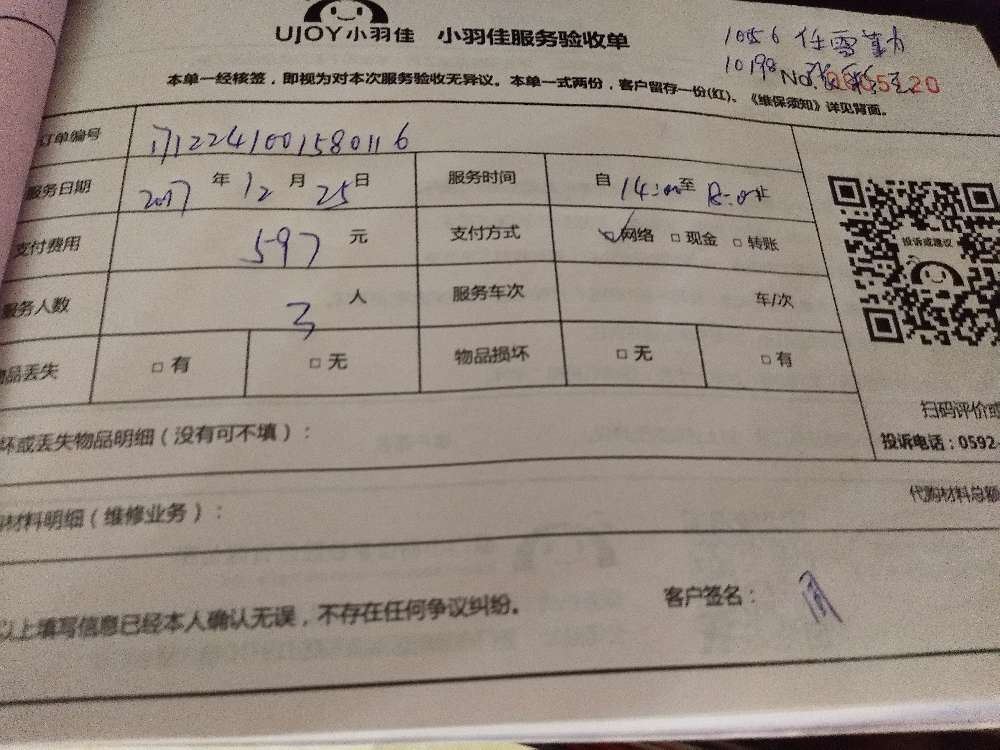 UJOY小羽佳 小羽佳服务验收单
1056 任雪
10198
本单一经核签，即视为对本次服务验收无异议。本单一式两份，客户留存一份(红)。《维保须知》详见背面。
No.
订单编号
服务日期 2017 年 12 月 25 日 服务时间 自 14:00 至 止
支付费用 597 元 支付方式 网络 □ 现金 □ 转账
服务人数 3 人 服务车次 车/次
品丢失 □ 有 □ 无 物品损坏 □ 无 □ 有
投诉或建议
扫码评价或
投诉电话：0592-
坏或丢失物品明细（没有可不填）：
代购材料总额
材料明细（维修业务）：
以上填写信息已经本人确认无误，不存在任何争议纠纷。 客户签名：